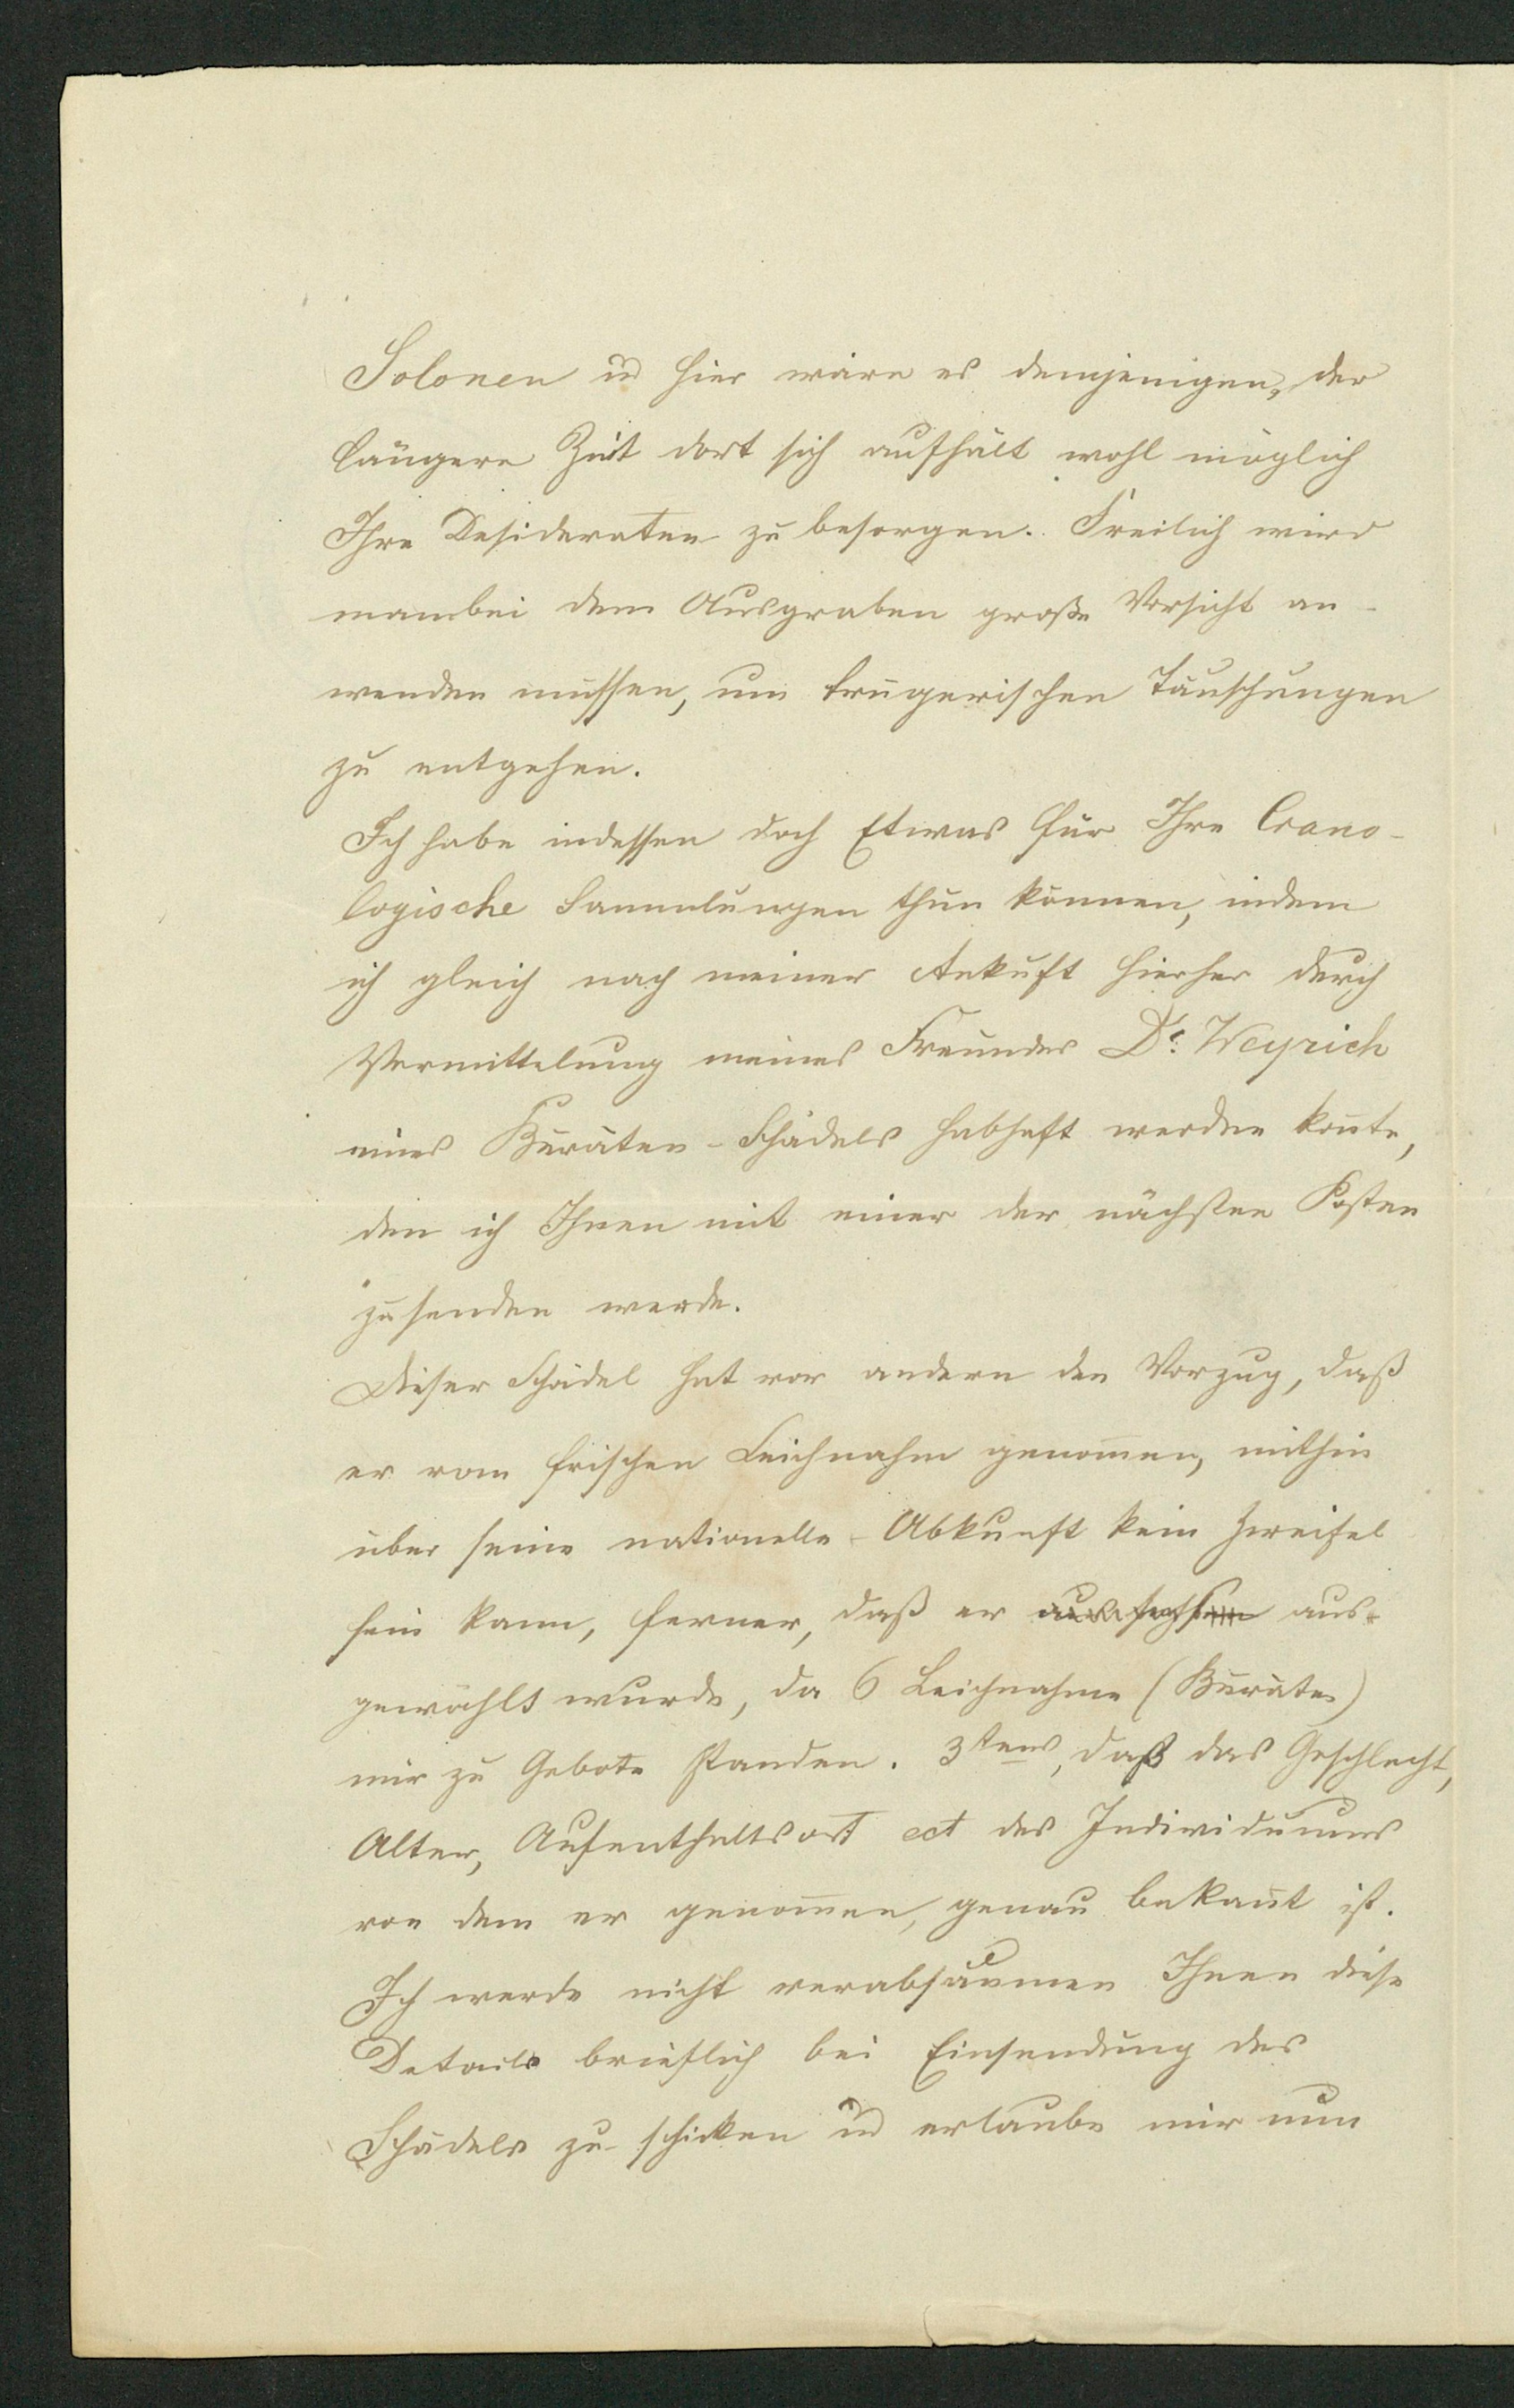 Solonen ud hier wäre es demjenigen, der
längere Zeit dort sich aufhält wohl möglich
Ihre Desideraten zu besorgen. Freilich wird
man bei dem Ausgraben große Vorsicht an-
wenden müssen, um trügerischen Täuschungen
zu entgehen.
Ich habe indessen doch Etwas für Ihre Crano-
logische Sammlungen thun können, indem
ich gleich nach meiner Ankuft hierher durch
Vermittelung meines Freundes Dr. Weyrich
eines Buräten-Schädels habhaft werden konte,
den ich Ihnen mit einer der nächsten Posten
zusenden werde.
Dieser Schädel hat vor andern den Vorzug, daß
er vom frischen Leichnahm genomen, mithin
über seine nationelle Abkunft kein Zweifel
sein kann, ferner, daß er aus-
gewählt wurde, da 6 Leichnahme (Buräten)
mir zu Gebote standen. 3tens, daß das Geschlecht,
Alter, Aufenthaltsort ect des Individuums
von dem er genomen, genau bekant ist.
Ich werde nicht verabsäumen Ihnen diese
Details brieflich bei Einsendung des
Schädels zu schicken ud erlaube mir nun